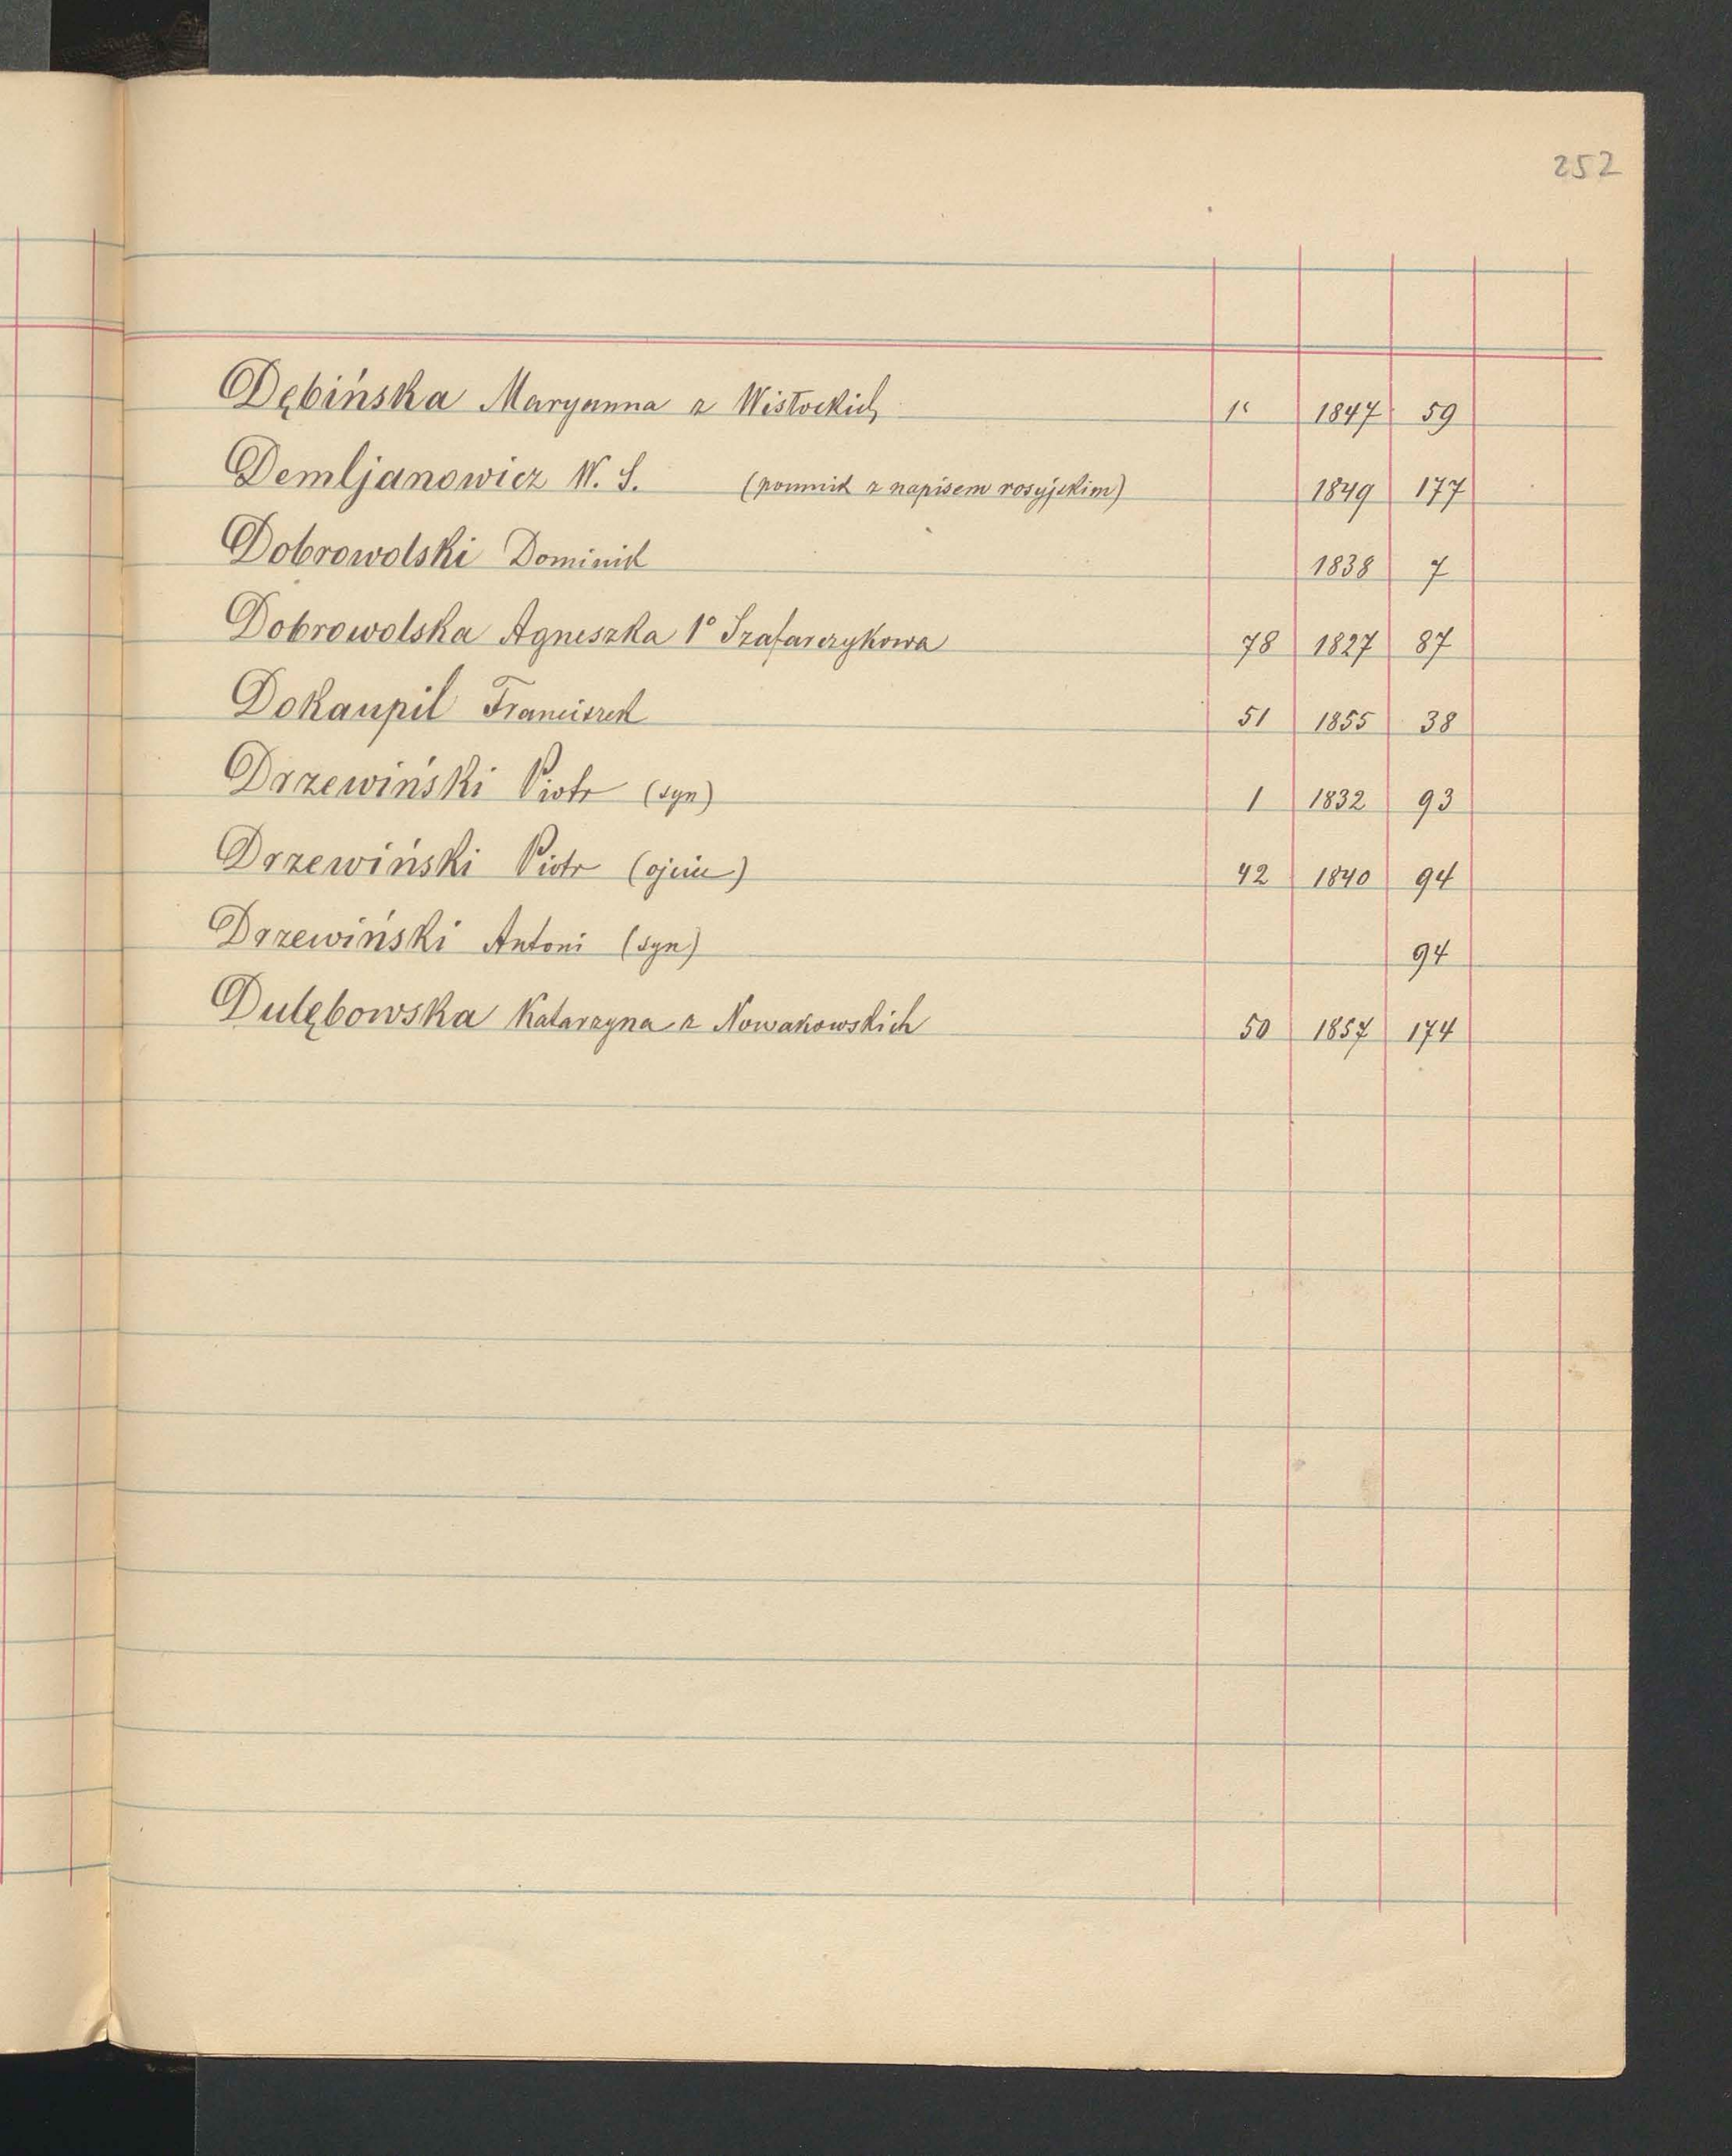 252
Dębińska Maryanna z Wisłockich 1847 59
Demljanowicz W. S. (pomnik z napisem rosyjskim) 1849 177
Dobrowolski Dominik 1838 7
Dobrowolska Agneszka 1° Szafarczykowa 78 1827 87
Dokaupil Franciszek 51 1855 38
Drzewiński Piotr (syn) 1 1832 93
Drzewiński Piotr (ojciec) 42 1840 94
Drzewiński Antoni (syn) 94
Dulębowska Katarzyna z Nowakowskich 50 1857 174